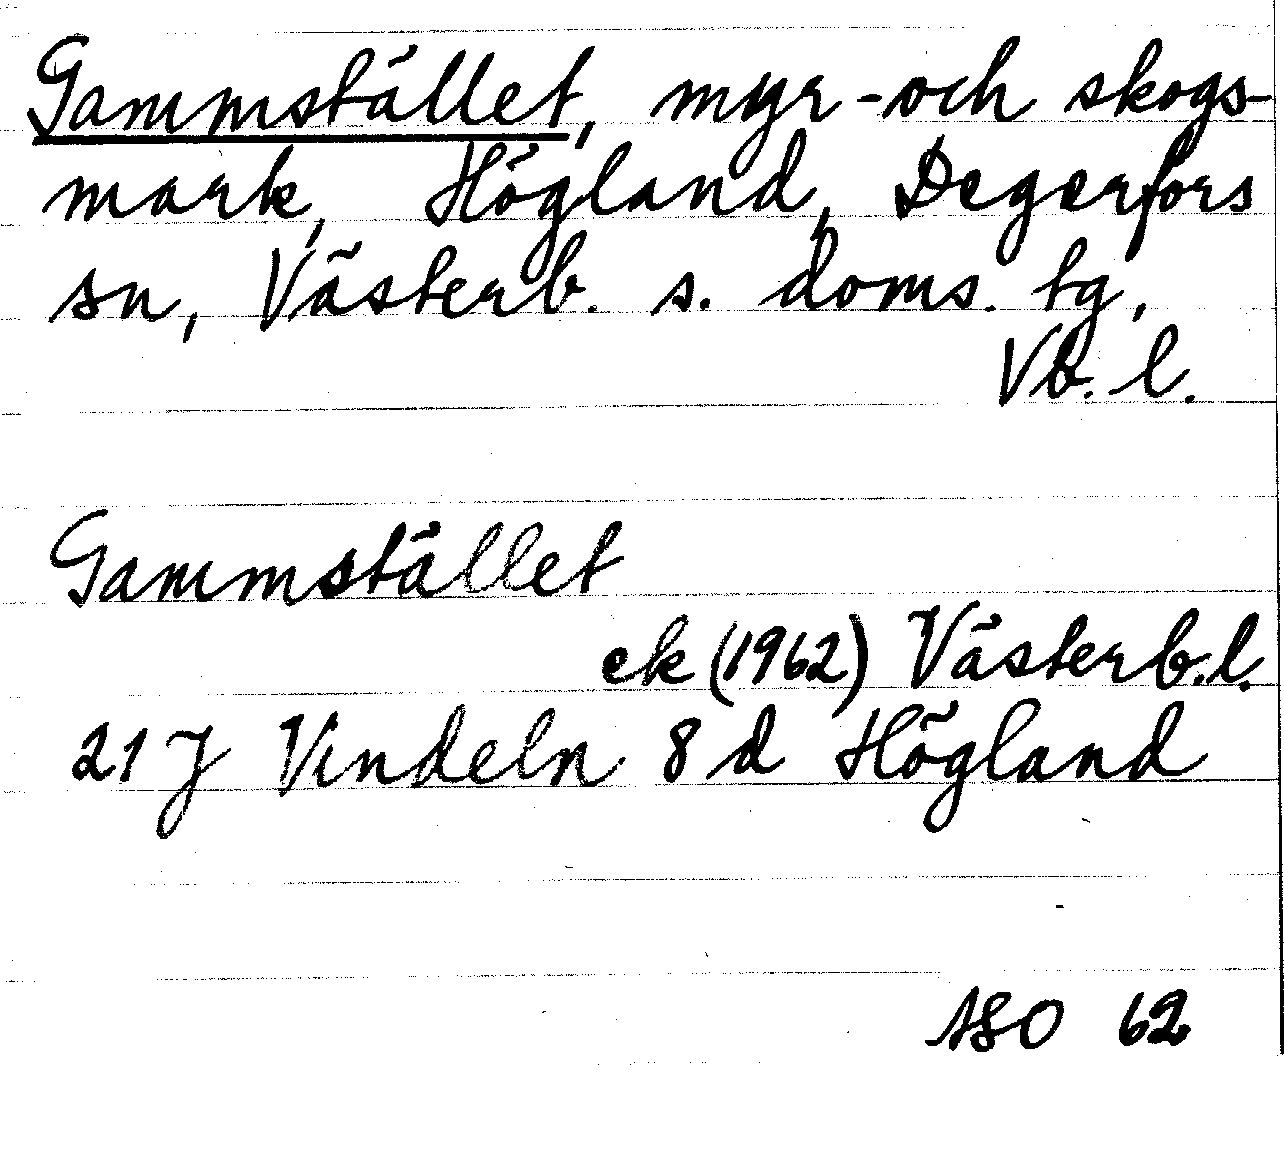 Gammstället, myr- och skogs-
mark, Högland, Degerfors
sn, Västerb. s. doms. tg,
Vb. l.
Gammstället
ek (1962) Västerb. l.
21 J Vindeln 8 d Högland
ASO 62